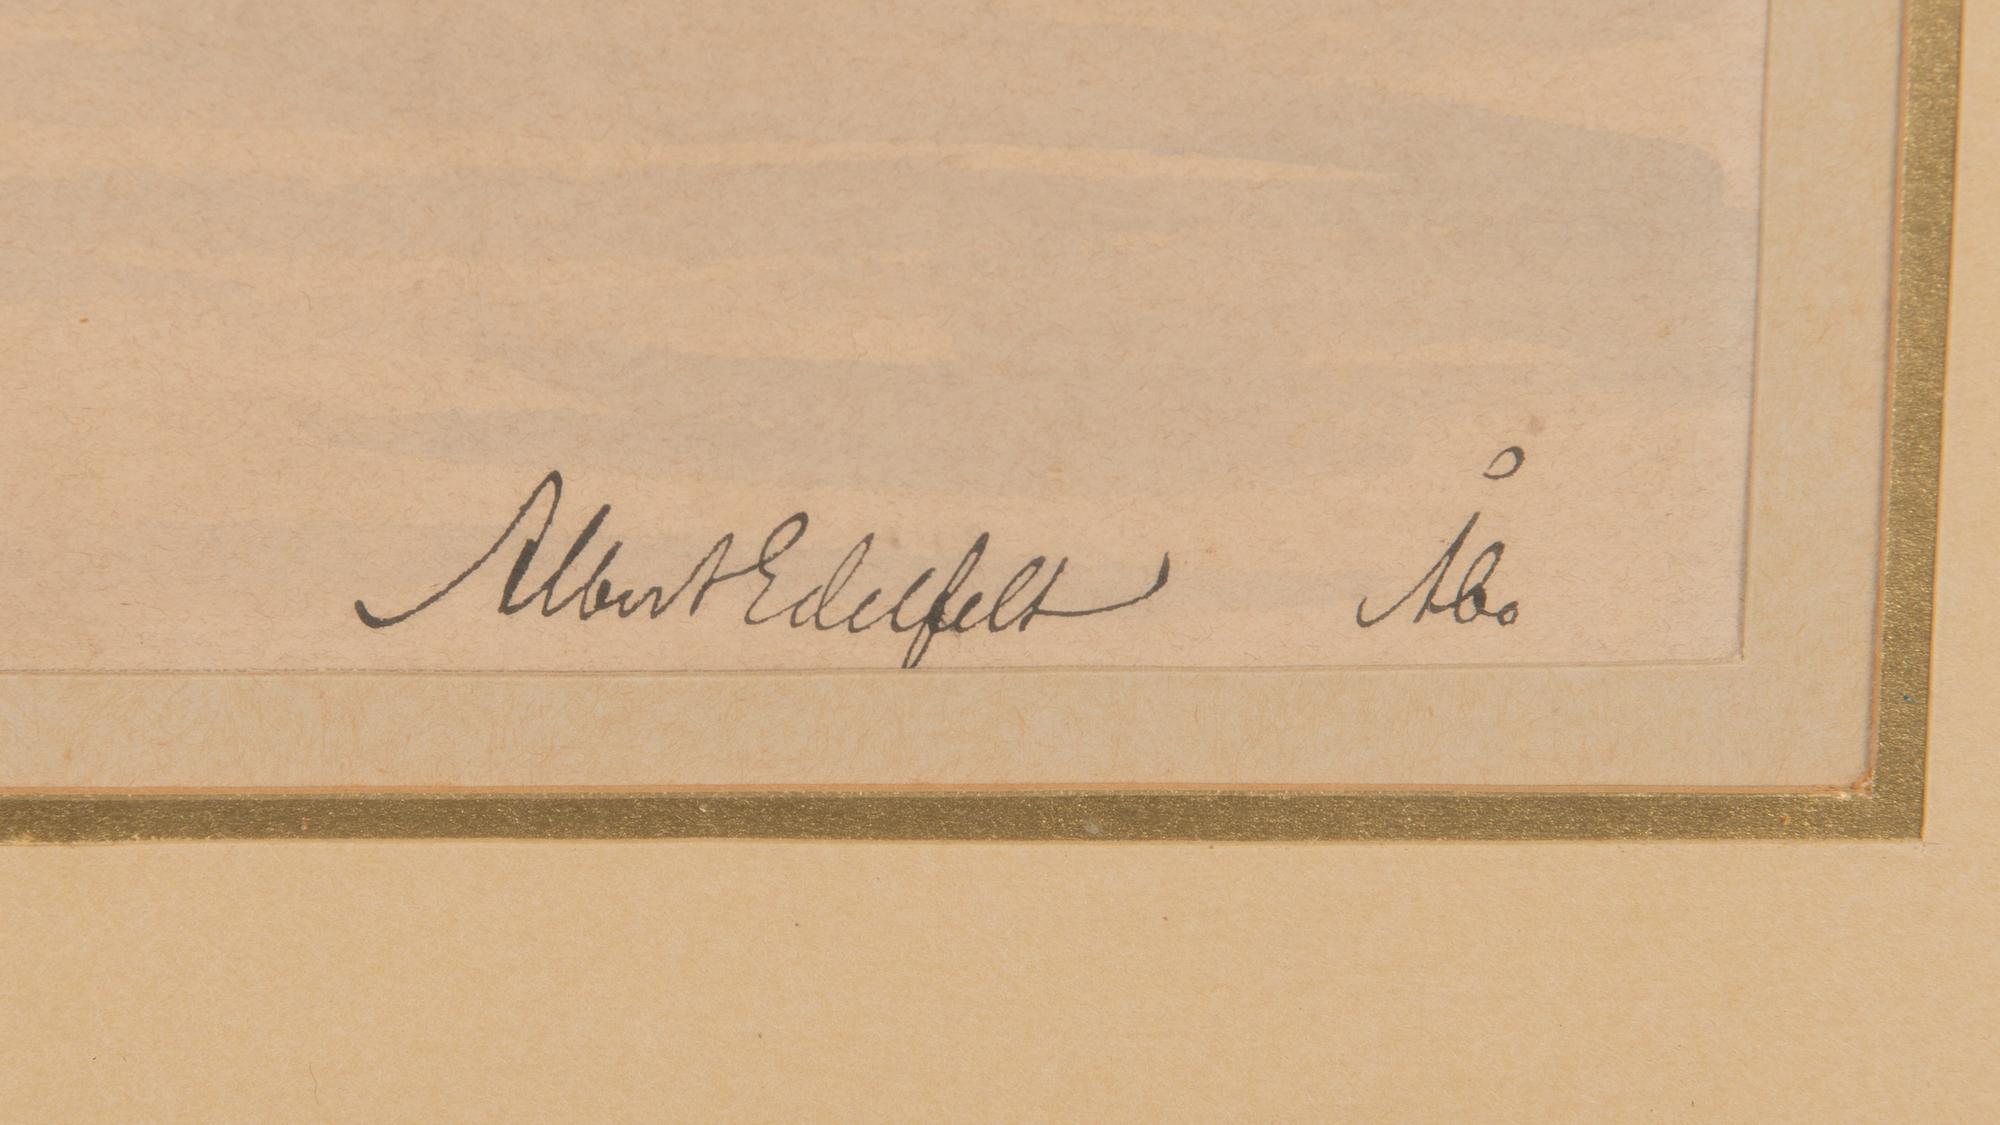 Albert Edelfelt Åbo.